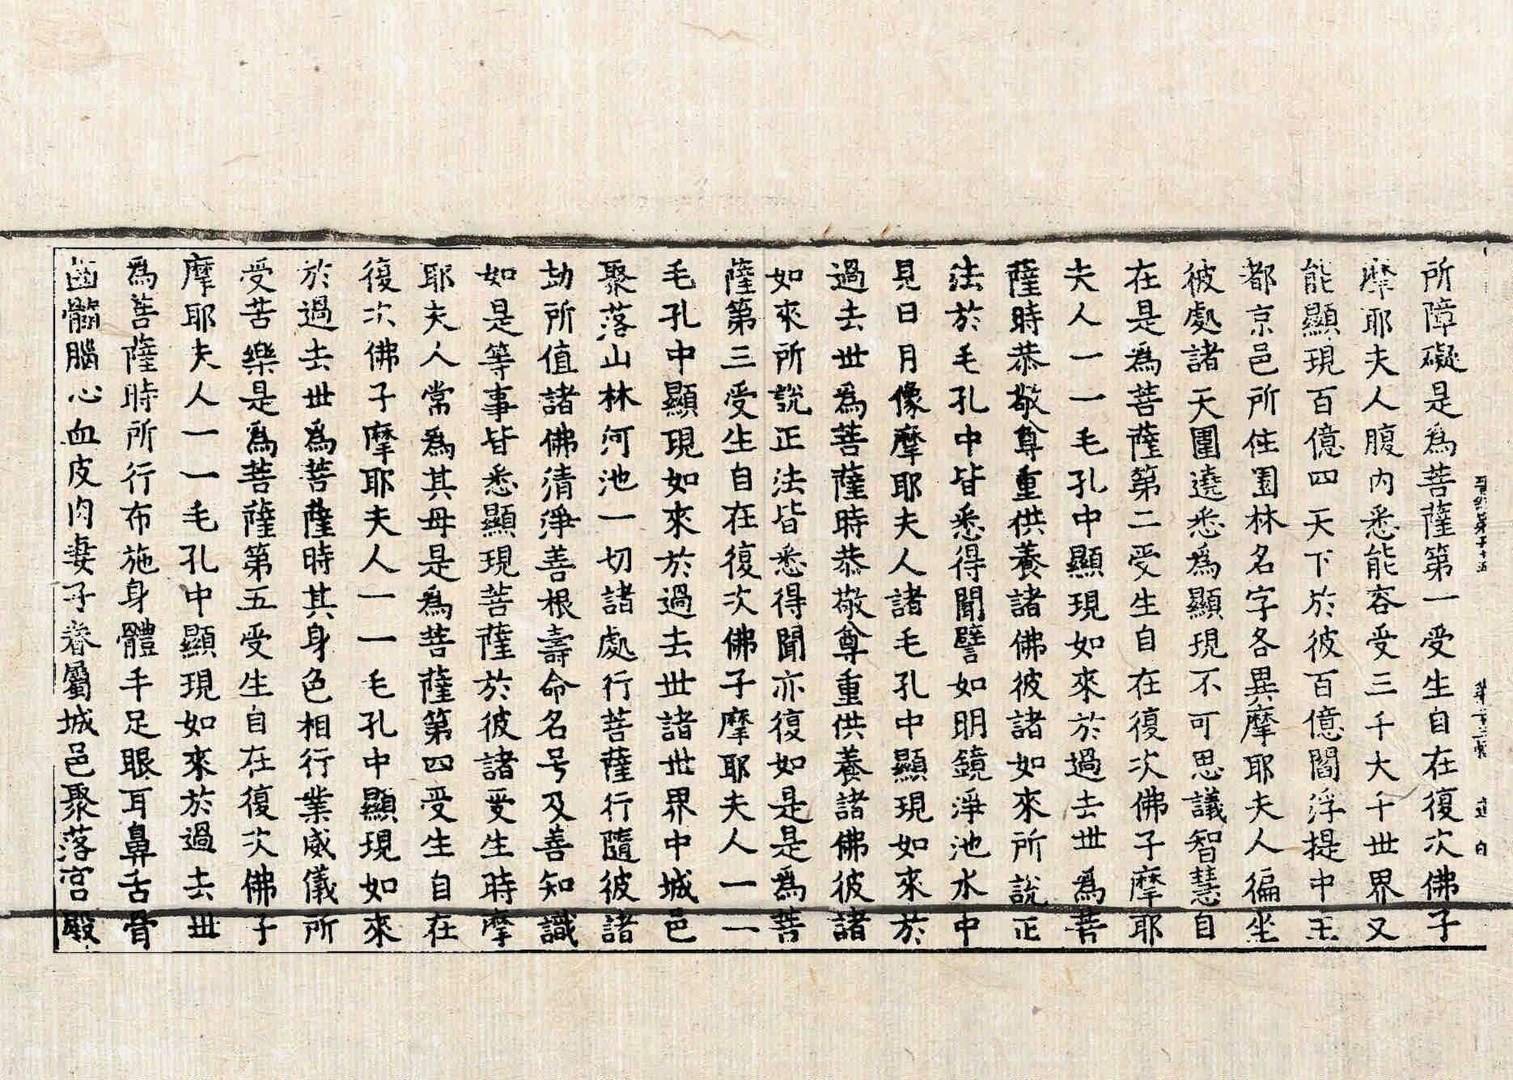 所障礙是為菩薩第一受生自在復次佛子
摩耶夫人腹內悉能容受三千大千世界又
能顯現百億四天下於彼百億閻浮提中王
都京邑所住園林名字各異摩耶夫人徧坐
彼處諸天圍遶悉為顯現不可思議智慧自
在是為菩薩第二受生自在復次佛子摩耶
夫人一一毛孔中顯現如來於過去世為菩
薩時恭敬尊重供養諸佛彼諸如來所說正
法於毛孔中皆悉得聞譬如明鏡淨池水中
見日月像摩耶夫人諸毛孔中顯現如來於
過去世為菩薩時恭敬尊重供養諸佛彼諸
如來所說正法皆悉得聞亦復如是是為菩
薩第三受生自在復次佛子摩耶夫人一一
毛孔中顯現如來於過去世諸世界中城邑
聚落山林河池一切諸處行菩薩行隨彼諸
劫所值諸佛清淨善根壽命名号及善知識
如是等事皆悉顯現菩薩於彼諸受生時摩
耶夫人常為其母是為菩薩第四受生自在
復次佛子摩耶夫人一一毛孔中顯現如來
於過去世為菩薩時其身色相行業威儀所
受苦樂是為菩薩第五受生自在復次佛子
摩耶夫人一一毛孔中顯現如來於過去世
為菩薩時所行布施身體手足眼耳鼻舌骨
齒髓腦心血皮肉妻子眷屬城邑聚落宮殿